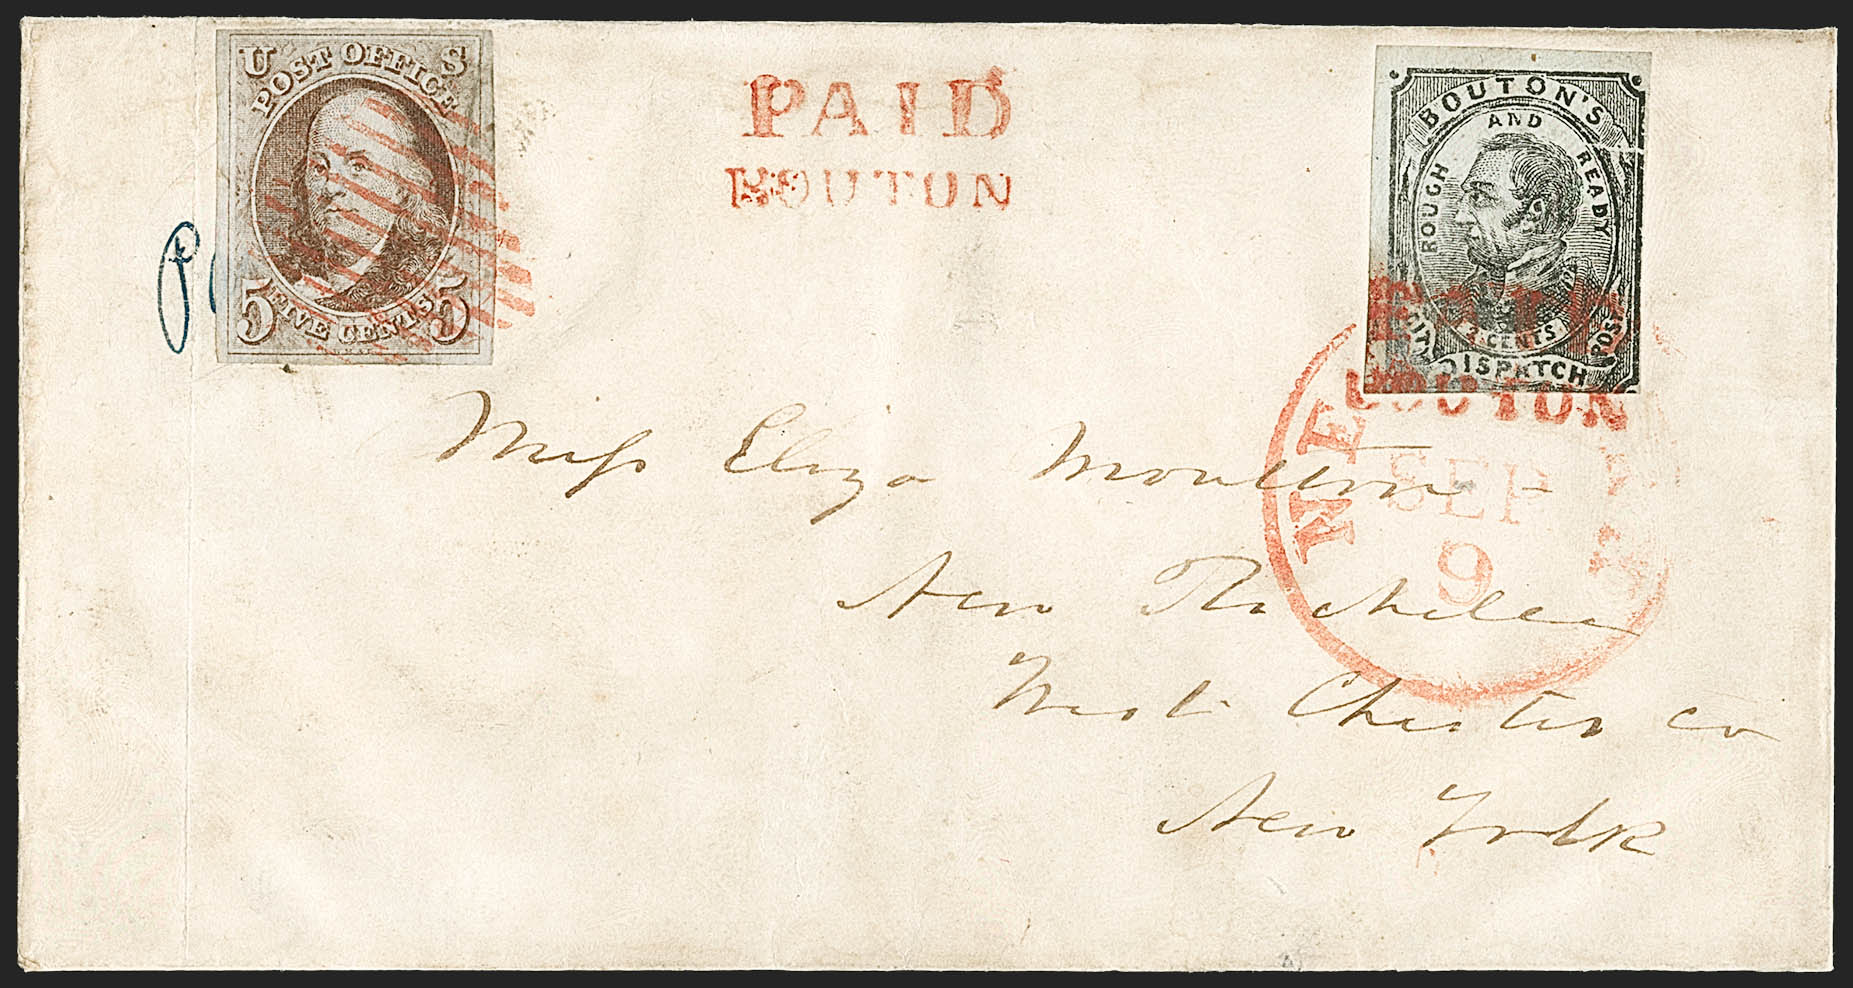 U S
POST OFFICE
5 FIVE CENTS 5
PAID
BOUTON
BOUTON'S
AND
ROUGH READY
2 CENTS
CITY DISPATCH POST
PAID
BOUTON
NEW
SEP
9
Miss Eliza Moulton -
New Rochelle
West Chester co
New York